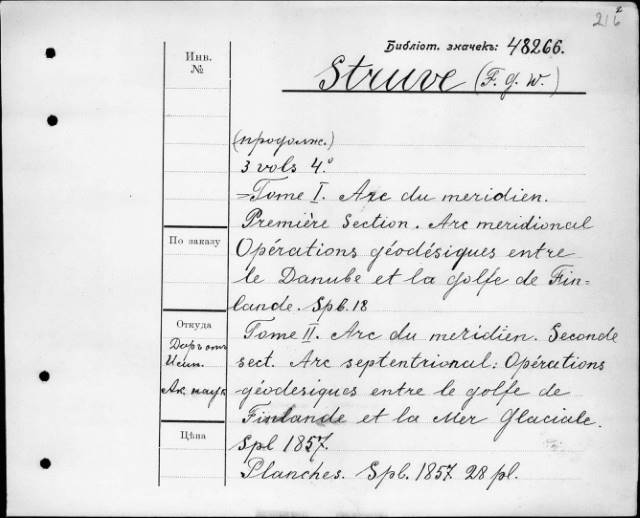 216
Библіот. значекъ: 48266.
Инв. №
Struve (F. G. W.)
(продолж.)
3 vols 4.°
=Tome I. Arc du meridien.
Première Section. Arc meridional
По заказу
Opérations géodésiques entre
le Danube et la golfe de Fin=
lande. Spb. 18
Откуда
Даръ отъ
Имп.
Ак. наук
Tome II. Arc du meridien. Seconde
sect. Arc septentrional: Opérations
géodesiques entre le golfe de
Finlande et la Mer Glaciale.
Цѣна
Spb 1857.
Planches. Spb. 1857. 28 pl.